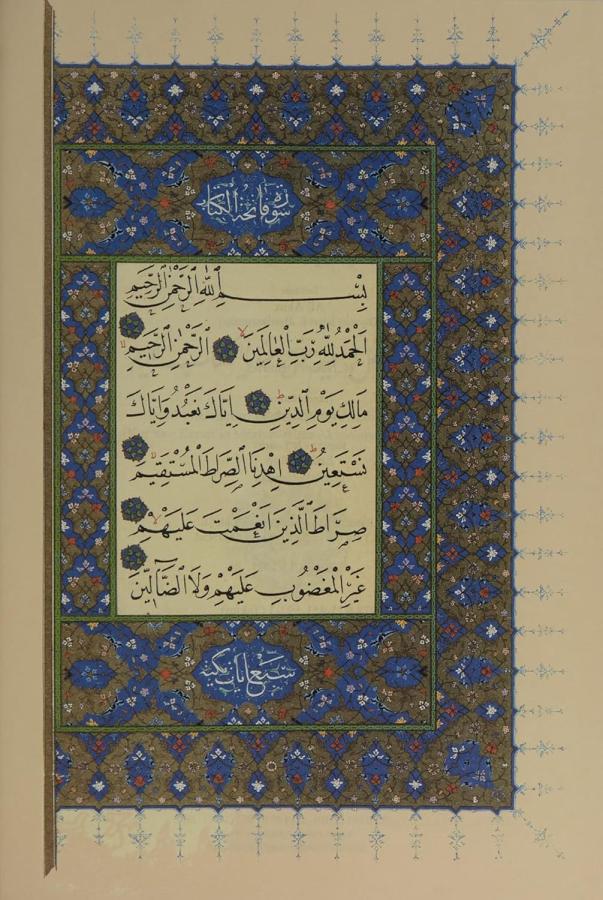 سورة فاتحة الكتاب
بِسْمِ ٱللَّهِ ٱلرَّحْمَٰنِ ٱلرَّحِيمِ
اَلْحَمْدُ لِلَّهِ رَبِّ الْعَالَمِينَ ۙ اَلرَّحْمٰنِ الرَّحِيمِ ۙ
مَالِكِ يَوْمِ الدِّينِ ۜ اِيَّاكَ نَعْبُدُ وَاِيَّاكَ
نَسْتَعِينُ ۜ اِهْدِنَا الصِّرَاطَ الْمُسْتَقِيمَ ۙ
صِرَاطَ الَّذِينَ اَنْعَمْتَ عَلَيْهِمْ ۙ
غَيْرِ الْمَغْضُوبِ عَلَيْهِمْ وَلَا الضَّٓالِّينَ
سبع آيات مكية